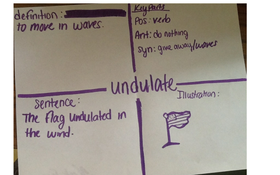 definition:
to move in waves.
Key Parts
Pos: verb
Ant: do nothing
Syn: give away/waves
undulate
Sentence:
The flag undulated in
the wind.
Illustration: